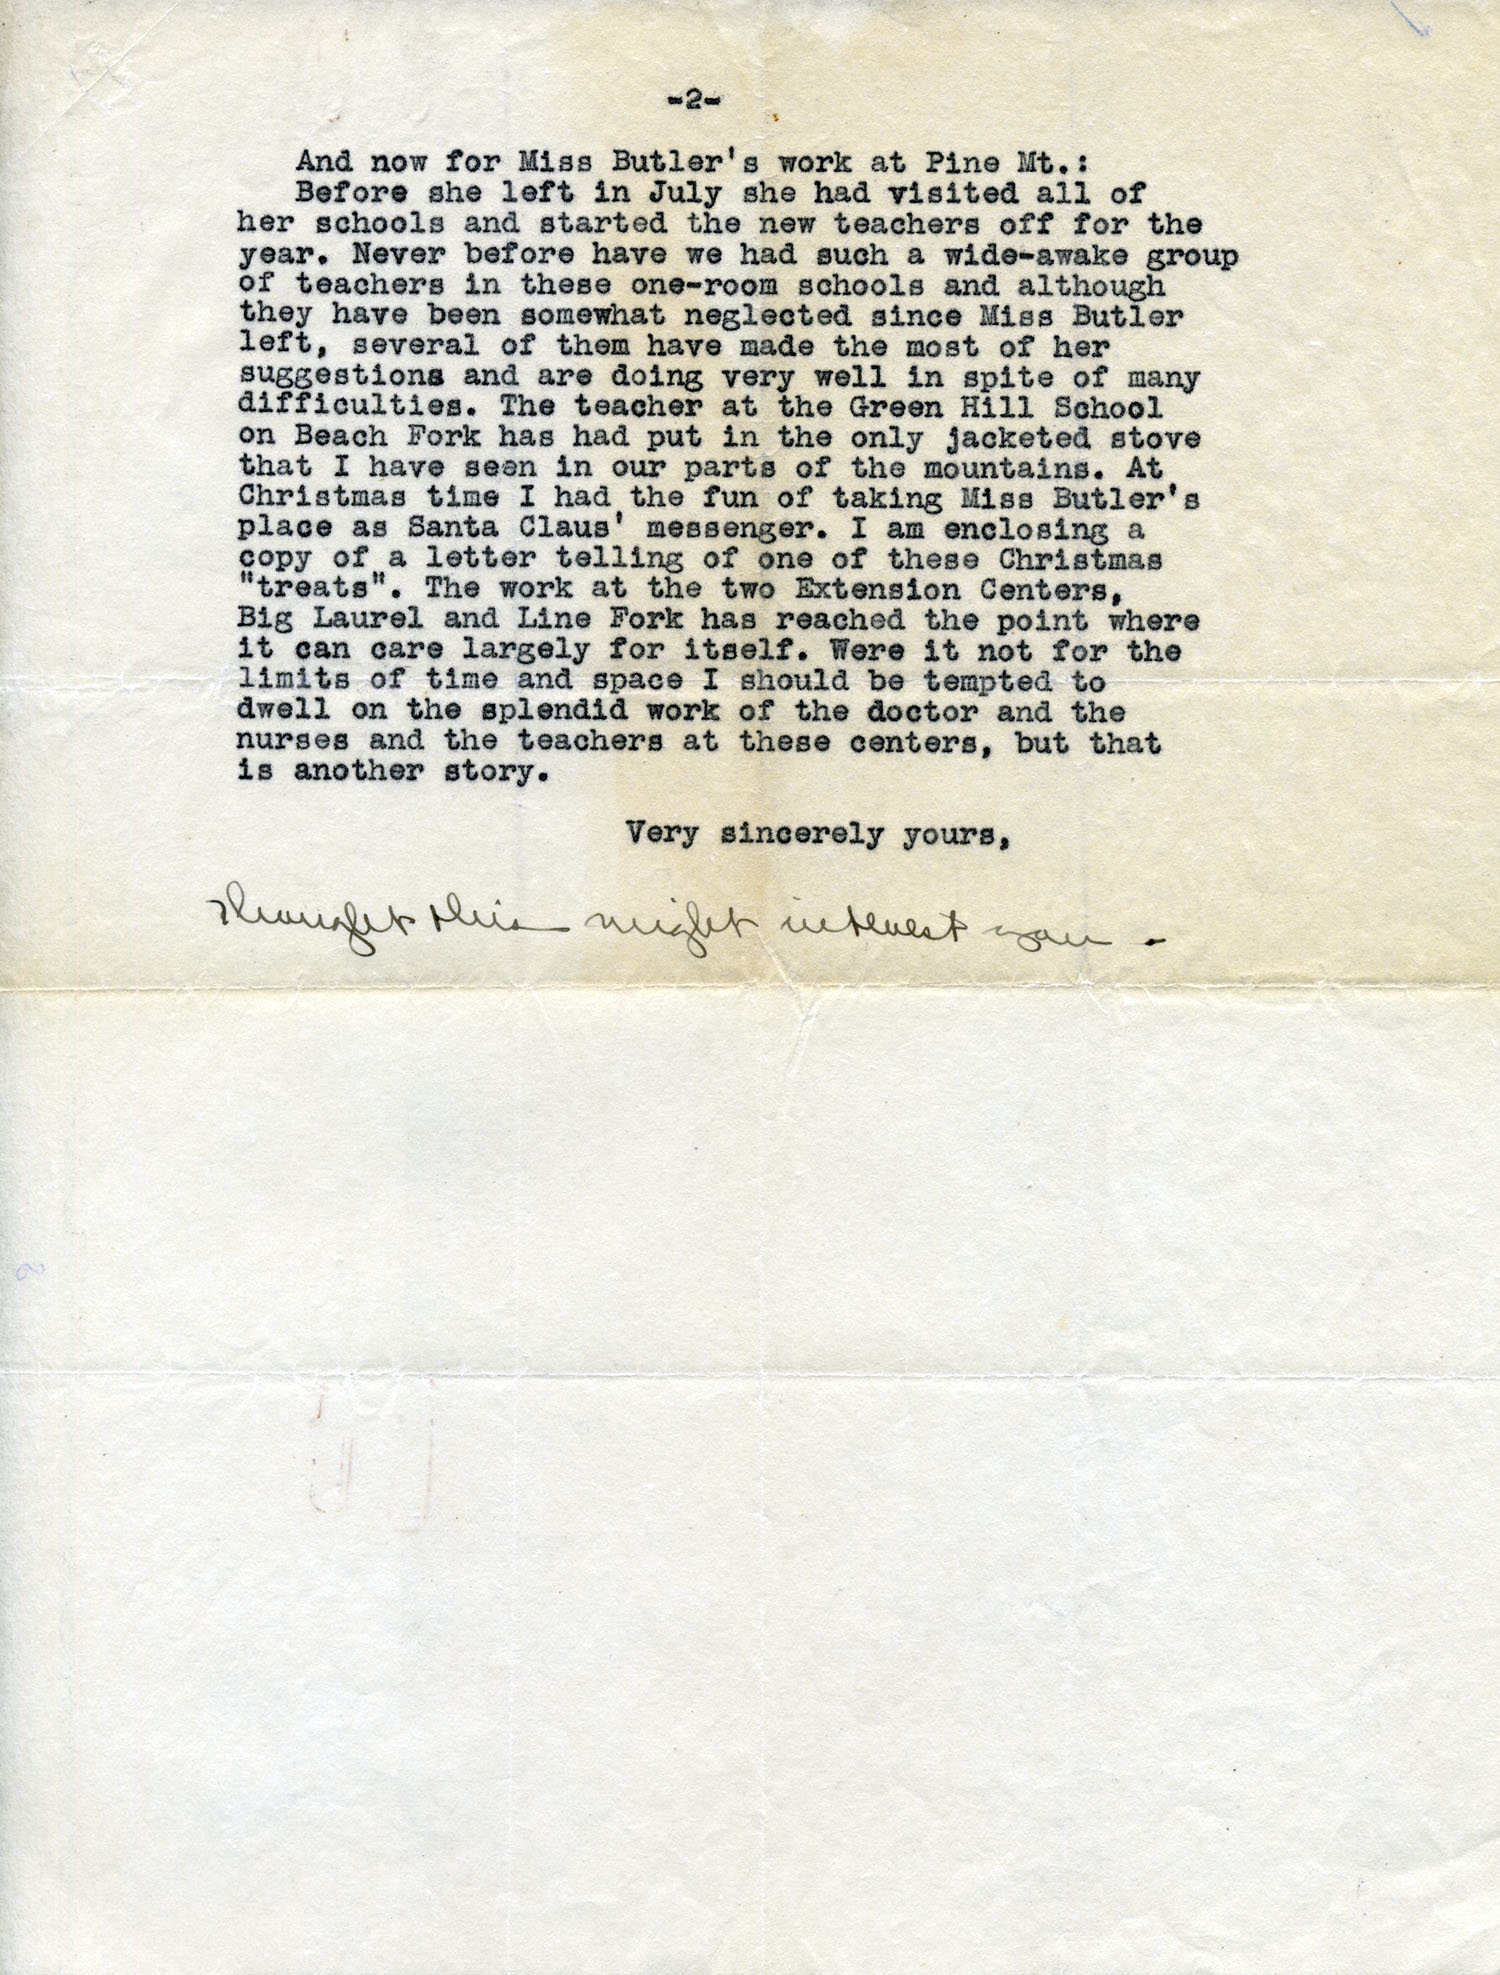 -2-
And now for Miss Butler's work at Pine Mt.:
Before she left in July she had visited all of
her schools and started the new teachers off for the
year. Never before have we had such a wide-awake group
of teachers in these one-room schools and although
they have been somewhat neglected since Miss Butler
left, several of them have made the most of her
suggestions and are doing very well in spite of many
difficulties. The teacher at the Green Hill School
on Beach Fork has had put in the only jacketed stove
that I have seen in our parts of the mountains. At
Christmas time I had the fun of taking Miss Butler's
place as Santa Claus' messenger. I am enclosing a
copy of a letter telling of one of these Christmas
"treats". The work at the two Extension Centers,
Big Laurel and Line Fork has reached the point where
it can care largely for itself. Were it not for the
limits of time and space I should be tempted to
dwell on the splendid work of the doctor and the
nurses and the teachers at these centers, but that
is another story.
Very sincerely yours,
Thought this might interest you.